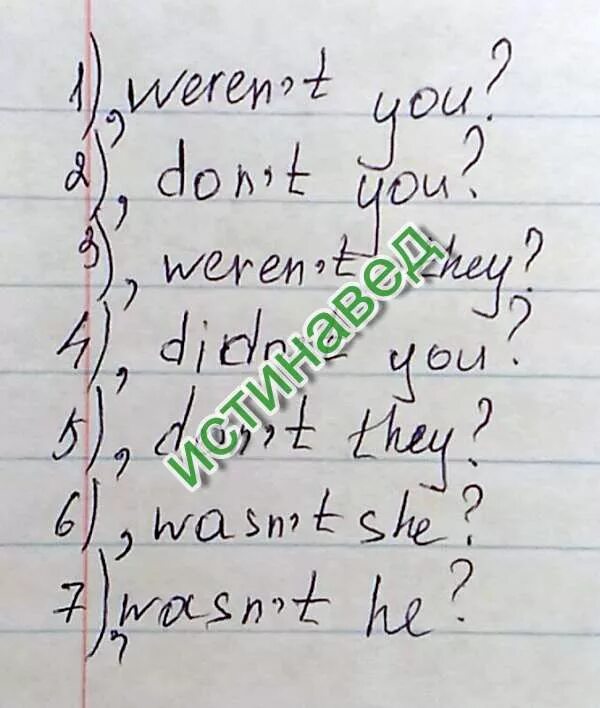 1), weren't you?
2), don't you?
3), weren't they?
4), didn't you?
5), don't they?
6), wasn't she?
7), wasn't he?
ИСТИНАВЕД